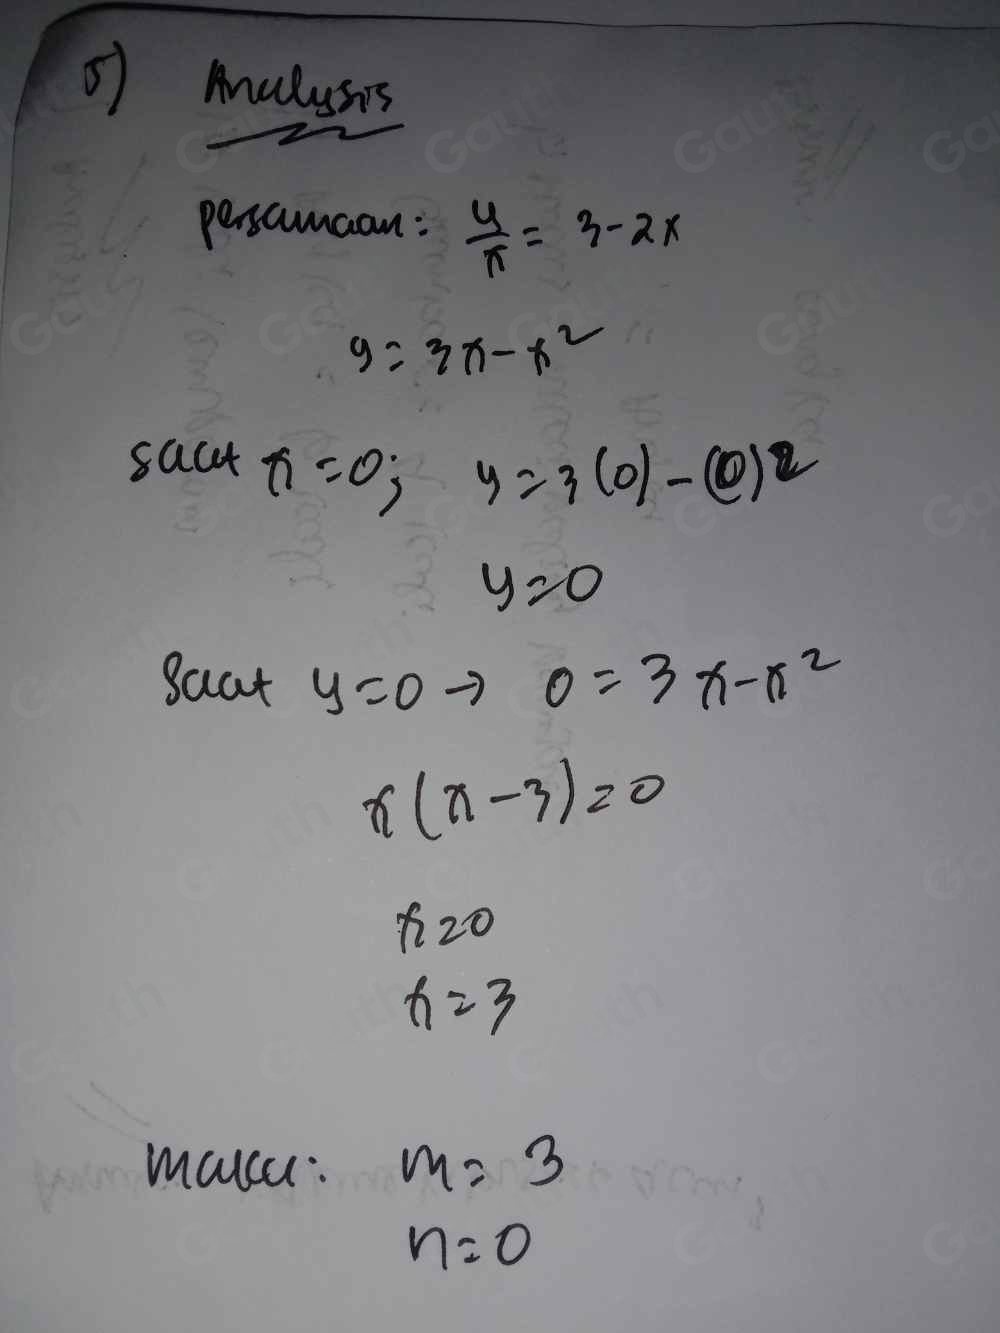 5) Analysis
persamaan: y/x = 3-2x
y = 3x - x²
saat x = 0; y = 3(0) - (0)²
y = 0
Saat y = 0 → 0 = 3x - x²
x(x-3) = 0
x = 0
x = 3
maka: m = 3
n = 0